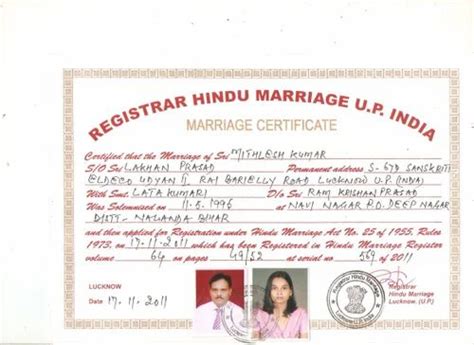 REGISTRAR HINDU MARRIAGE U.P. INDIA
MARRIAGE CERTIFICATE
Certified that the Marriage of Sri MITHLESH KUMAR
S/O Sri LAKHAN PRASAD Permanent address S-679 SANSKRITI
ELDECO UDYAN II, RAI BARIELLY ROAD LUCKNOW U.P. (INDIA)
With Smt. LATA KUMARI D/o Sri RAM KRISHAN PRASAD
Was Solemnised on 11.5.1996 at NAVI NAGAR P.O. DEEP NAGAR
DISTT- NALANDA BIHAR
and then applied for Registration under Hindu Marriage Act No. 25 of 1955, Rules
1973, on 17-11-2011 which has been Registered in Hindu Marriage Register
volume 64 on pages 49/52 at serial no 569 of 2011
LUCKNOW
Date 17-11-2011
Registrar
Hindu Marriage
Lucknow. (U.P.)